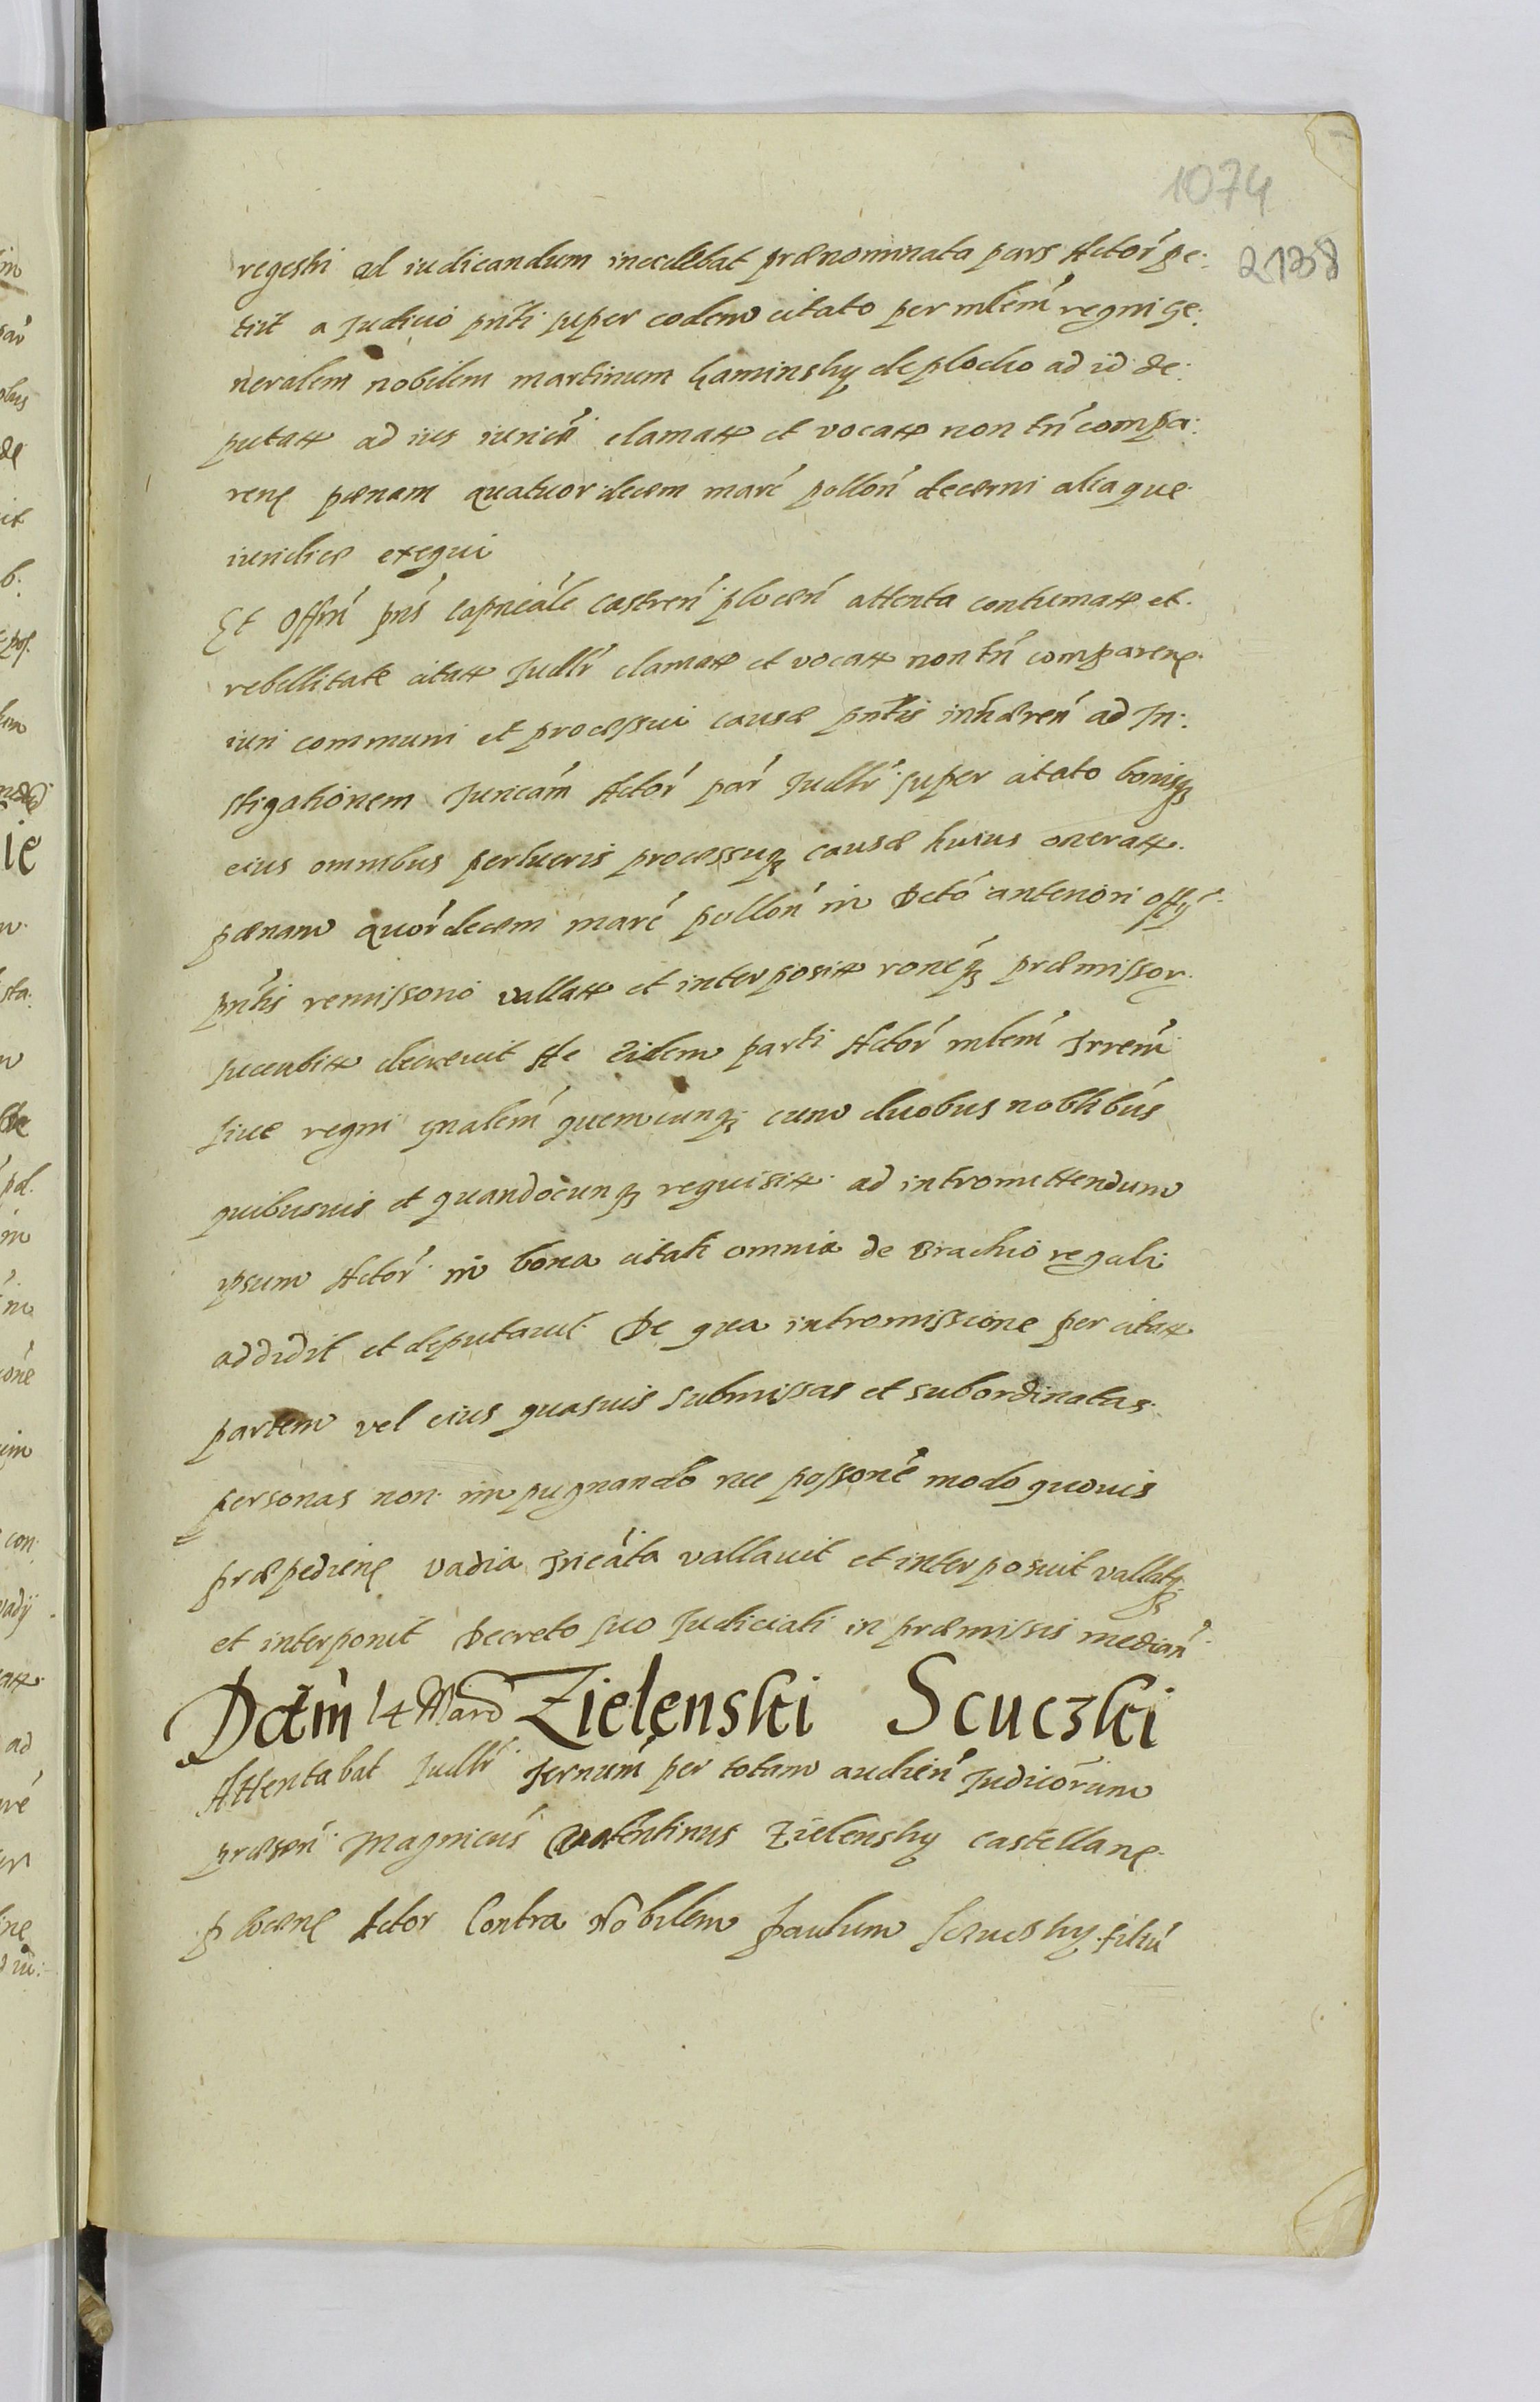 1074
2138
regestri ad iudicandum incidebat prænominata pars Actor̃ pe:
tiit a Judicio pñti super eodem citato per mlem̃ regni ge:
neralem nobilem martinum Kaminsky de plocko ad id de:
putatt ad ius iurice clamatt et vocatt non tñ compa:
ren pœnam quatuordecem marc̃ polloñ decerni aliaque
iuridice exequi
Et Offm̃ pñs Capneale Castreñ ploceñ attenta contumatt et
rebellitate citatt Judlr̃ clamatt et vocatt non tñ comparen
iuri communi et processui causæ pñtis inhæreñ ad In:
stigationem Juricam̃ Actor̃ par̃ Judlr̃ super citato bonisq
eius omnibus perlucris processuq causæ huius oneratt
pœnam quor̃decem marc̃ polloñ in Dcto anteriori offij
pñtis remissorio vallatt et interpositt roneq præmissor
succubitt decrevit Ac Eidem parti Actor̃ mlem̃ Irrem̃
sive regni gnalem̃ quemcunq cum duobus noblibus
quibusvis et quandocunq requisitt ad intromittendum
ipsum Actor̃ in bona citati omnia de Brachio regali
addidit et deputavit De qua intromissione per citatt
partem vel eius quasvis submissas et subordinatas
personas non impugnando nec possone modo quovis
præpedien vadia Iricata vallavit et interposuit vallatq
et interponit Decreto suo Judiciali in præmissis mediañ
Dctm̃ 14 Marc Zielenski Scuczki
Attentabat Judlr̃ Ternum̃ per totam audieñ Judiciorum
præseñ Magnicus Valentinus Zielensky castellan
plocen Actor Contra Nobilem paulum Scucsky filiu